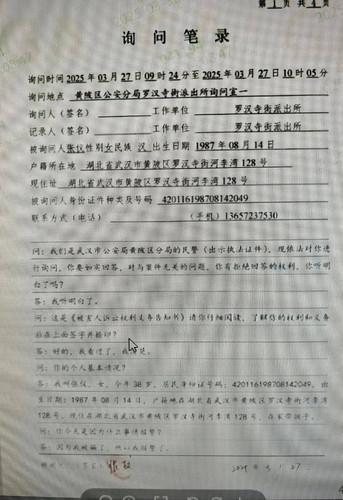 第 1 页 共 4 页
询 问 笔 录
询问时间 2025 年 03 月 27 日 09 时 24 分至 2025 年 03 月 27 日 10 时 05 分
询问地点 黄陂区公安分局罗汉寺街派出所询问室一
询问人（签名） 工作单位 罗汉寺街派出所
记录人（签名） 工作单位 罗汉寺街派出所
被询问人 性别 女 民族 汉 出生日期 1987 年 08 月 14 日
户籍所在地 湖北省武汉市黄陂区罗汉寺街河李湾 128 号
现住址 湖北省武汉市黄陂区罗汉寺街河李湾 128 号
被询问人身份证件种类及号码 420116198708142049
联系方式（电话） （手机）13657237530
问：我们是武汉市公安局黄陂区分局的民警（出示执法证件），现依法对你进
行询问，你要如实回答，对与案件无关的问题，你有拒绝回答的权利，你听明
白了吗？
答：我听明白了。
问：这是《被害人诉讼权利义务告知书》请你仔细阅读，了解你的权利和义务
后在上面签字并捺印？
答：好的，我看过了，我
问：你的个人基本情况？
答：我叫张 ，女，今年 38 岁，居民身份证号码：420116198708142049，出
生日期：1987 年 08 月 14 日，户籍地在湖北省武汉市黄陂区罗汉寺街河李湾
128 号，现住在湖北省武汉市黄陂区罗汉寺街河李湾 128 号，在家带孩子。
问：你今天是因为什么事情报警？
答：因为我被骗了，所以我报警了。